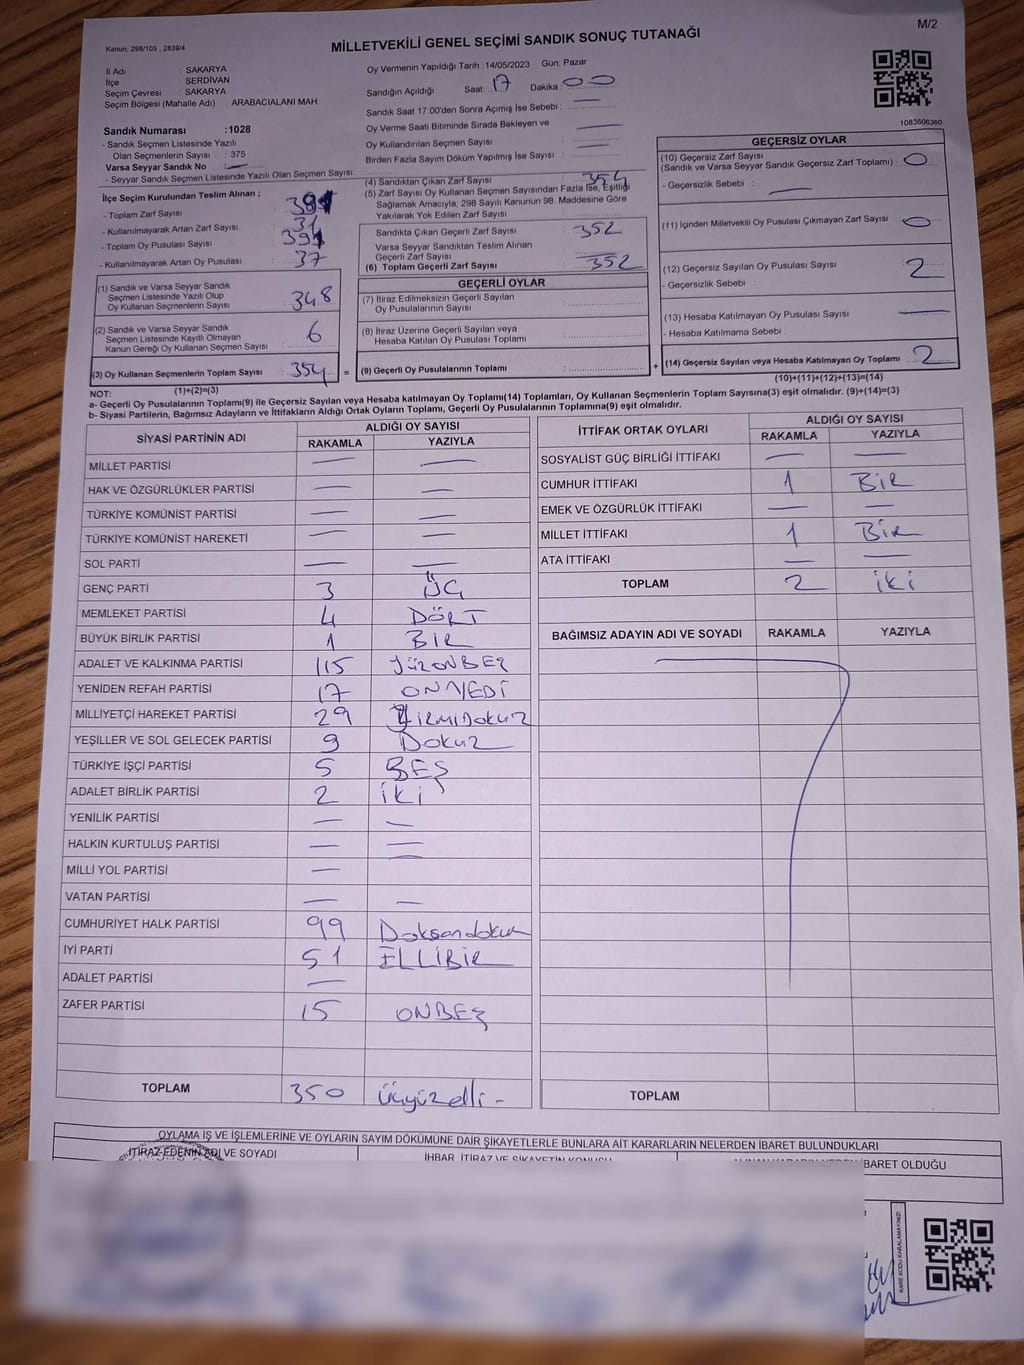 M/2
Kanun; 298/105 , 2839/4
MİLLETVEKİLİ GENEL SEÇİMİ SANDIK SONUÇ TUTANAĞI
İl Adı : SAKARYA
İlçe : SERDİVAN
Seçim Çevresi : SAKARYA
Seçim Bölgesi (Mahalle Adı) : ARABACIALANI MAH.
Oy Vermenin Yapıldığı Tarih :14/05/2023 Gün: Pazar
Sandığın Açıldığı Saat: 17 Dakika: 00
Sandık Saat 17:00'den Sonra Açımış İse Sebebi : —
Oy Verme Saati Bitiminde Sırada Bekleyen ve
Oy Kullandırılan Seçmen Sayısı : —
Birden Fazla Sayım Döküm Yapılmış İse Sayısı : —
1083606360
Sandık Numarası :1028
- Sandık Seçmen Listesinde Yazılı
Olan Seçmenlerin Sayısı : 375
Varsa Seyyar Sandık No : —
- Seyyar Sandık Seçmen Listesinde Yazılı Olan Seçmen Sayısı:
İlçe Seçim Kurulundan Teslim Alınan ;
- Toplam Zarf Sayısı
- Kullanılmayarak Artan Zarf Sayısı : 31
- Toplam Oy Pusulası Sayısı : 391
- Kullanılmayarak Artan Oy Pusulası : 37
(1) Sandık ve Varsa Seyyar Sandık
Seçmen Listesinde Yazılı Olup
Oy Kullanan Seçmenlerin Sayısı : 348
(2) Sandık ve Varsa Seyyar Sandık
Seçmen Listesinde Kayıtlı Olmayan
Kanun Gereği Oy Kullanan Seçmen Sayısı : 6
(3) Oy Kullanan Seçmenlerin Toplam Sayısı : 354 =
(1)+(2)=(3)
(4) Sandıktan Çıkan Zarf Sayısı : 354
(5) Zarf Sayısı Oy Kullanan Seçmen Sayısından Fazla İse, Eşitliği
Sağlamak Amacıyla; 298 Sayılı Kanunun 98. Maddesine Göre
Yakılarak Yok Edilen Zarf Sayısı :
Sandıkta Çıkan Geçerli Zarf Sayısı : 352
Varsa Seyyar Sandıktan Teslim Alınan
Geçerli Zarf Sayısı : —
(6) Toplam Geçerli Zarf Sayısı : 352
GEÇERLİ OYLAR
(7) İtiraz Edilmeksizin Geçerli Sayılan
Oy Pusulalarının Sayısı :
(8) İtiraz Üzerine Geçerli Sayılan veya
Hesaba Katılan Oy Pusulası Toplamı :
(9) Geçerli Oy Pusulalarının Toplamı : +
GEÇERSİZ OYLAR
(10) Geçersiz Zarf Sayısı
(Sandık ve Varsa Seyyar Sandık Geçersiz Zarf Toplamı) : 0
- Geçersizlik Sebebi : —
(11) İçinden Milletvekili Oy Pusulası Çıkmayan Zarf Sayısı : 0
(12) Geçersiz Sayılan Oy Pusulası Sayısı : 2
- Geçersizlik Sebebi :
(13) Hesaba Katılmayan Oy Pusulası Sayısı : —
- Hesaba Katılmama Sebebi :
(14) Geçersiz Sayılan veya Hesaba Katılmayan Oy Toplamı : 2
(10)+(11)+(12)+(13)=(14)
NOT:
a- Geçerli Oy Pusulalarının Toplamı(9) ile Geçersiz Sayılan veya Hesaba katılmayan Oy Toplamı(14) Toplamları, Oy Kullanan Seçmenlerin Toplam Sayısına(3) eşit olmalıdır. (9)+(14)=(3)
b- Siyasi Partilerin, Bağımsız Adayların ve İttifakların Aldığı Ortak Oyların Toplamı, Geçerli Oy Pusulalarının Toplamına(9) eşit olmalıdır.
SİYASİ PARTİNİN ADI ALDIĞI OY SAYISI
RAKAMLA YAZIYLA
MİLLET PARTİSİ — —
HAK VE ÖZGÜRLÜKLER PARTİSİ — —
TÜRKİYE KOMÜNİST PARTİSİ — —
TÜRKİYE KOMÜNİST HAREKETİ — —
SOL PARTİ — —
GENÇ PARTİ 3 ÜÇ
MEMLEKET PARTİSİ 4 DÖRT
BÜYÜK BİRLİK PARTİSİ 1 BİR
ADALET VE KALKINMA PARTİSİ 115 YÜZONBEŞ
YENİDEN REFAH PARTİSİ 17 ONYEDİ
MİLLİYETÇİ HAREKET PARTİSİ 29 YİRMİDOKUZ
YEŞİLLER VE SOL GELECEK PARTİSİ 9 DOKUZ
TÜRKİYE İŞÇİ PARTİSİ 5 BEŞ
ADALET BİRLİK PARTİSİ 2 İKİ
YENİLİK PARTİSİ — —
HALKIN KURTULUŞ PARTİSİ — —
MİLLİ YOL PARTİSİ —
VATAN PARTİSİ — —
CUMHURİYET HALK PARTİSİ 99 Doksandokuz
İYİ PARTİ 51 ELLİBİR
ADALET PARTİSİ —
ZAFER PARTİSİ 15 ONBEŞ
TOPLAM 350 Üçyüzelli -
İTTİFAK ORTAK OYLARI ALDIĞI OY SAYISI
RAKAMLA YAZIYLA
SOSYALİST GÜÇ BİRLİĞİ İTTİFAKI — —
CUMHUR İTTİFAKI 1 BİR
EMEK VE ÖZGÜRLÜK İTTİFAKI — —
MİLLET İTTİFAKI 1 BİR
ATA İTTİFAKI — —
TOPLAM 2 İKİ
BAĞIMSIZ ADAYIN ADI VE SOYADI RAKAMLA YAZIYLA
TOPLAM
OYLAMA İŞ VE İŞLEMLERİNE VE OYLARIN SAYIM DÖKÜMÜNE DAİR ŞİKAYETLERLE BUNLARA AİT KARARLARIN NELERDEN İBARET BULUNDUKLARI
İTİRAZ EDENİN ADI VE SOYADI
İHBAR, İTİRAZ VE ŞİKAYETİN KONUSU
İBARET OLDUĞU
KARE KODU KARALAMAYINIZ!